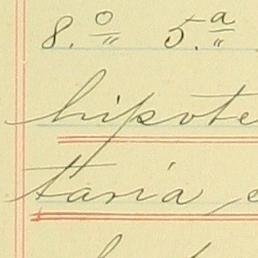 8.º 5.ª
hipote
taria e